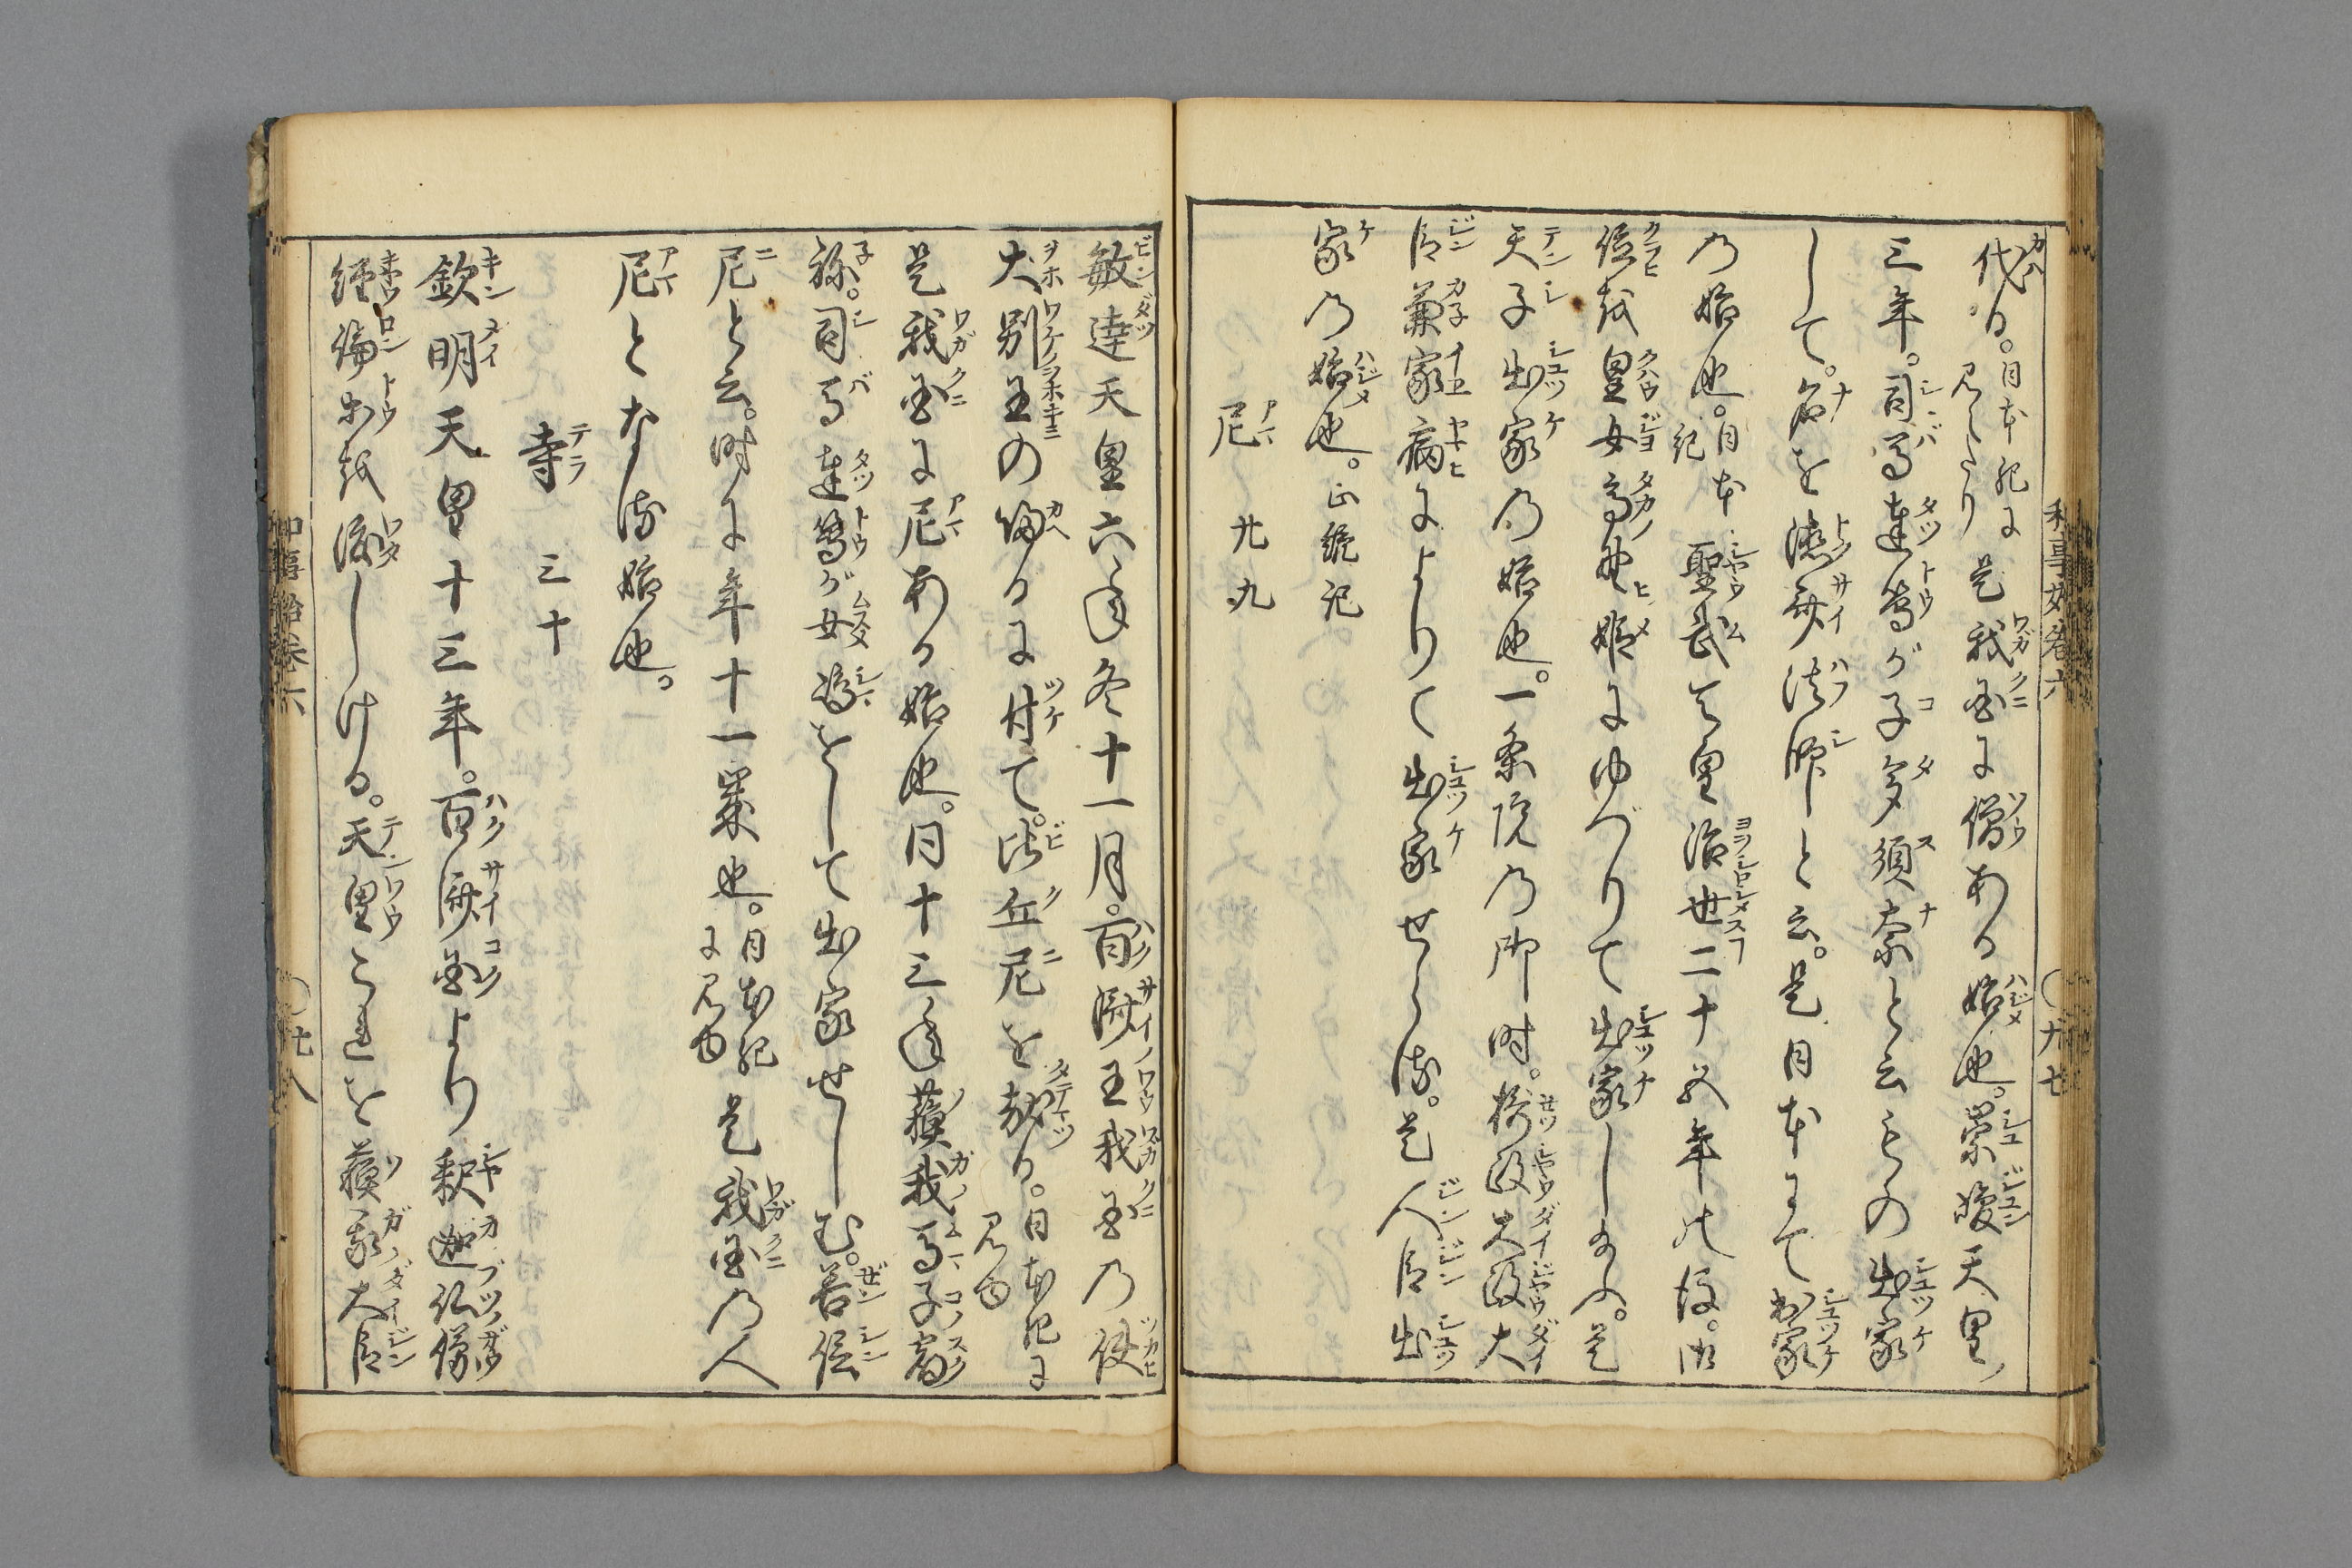 代る。日本紀に見えたり是我国に僧ある始也。崇峻天皇
三年。司馬達等が子多須奈と云もの出家
して。名を徳斉法師と云。是日本にて出家
の始也。日本紀 聖武天皇治世二十五年の後。御
位を皇女高野姫にゆづりて出家し給ふ。是
天子出家の始也。一条院の御時。摂政太政大
臣兼家病によりて出家せらる。是人臣出
家の始也。正統記
尼 廿九
和事始巻六 ○廿七
敏達天皇六年冬十一月。百済王我国の使
大別王の帰るに付て。比丘尼を献る。日本紀に見ゆ
是我国に尼ある始也。同十三年蘇我馬子宿
祢。司馬達等が女嶋をして出家せしむ。善信
尼と云。時に年十一歳也。日本紀に見ゆ是我国の人
尼となる始也。
寺 三十
欽明天皇十三年。百済国より釈迦仏像
経論等を渡しける。天皇これを蘇我大臣
和事始巻六 ○廿八